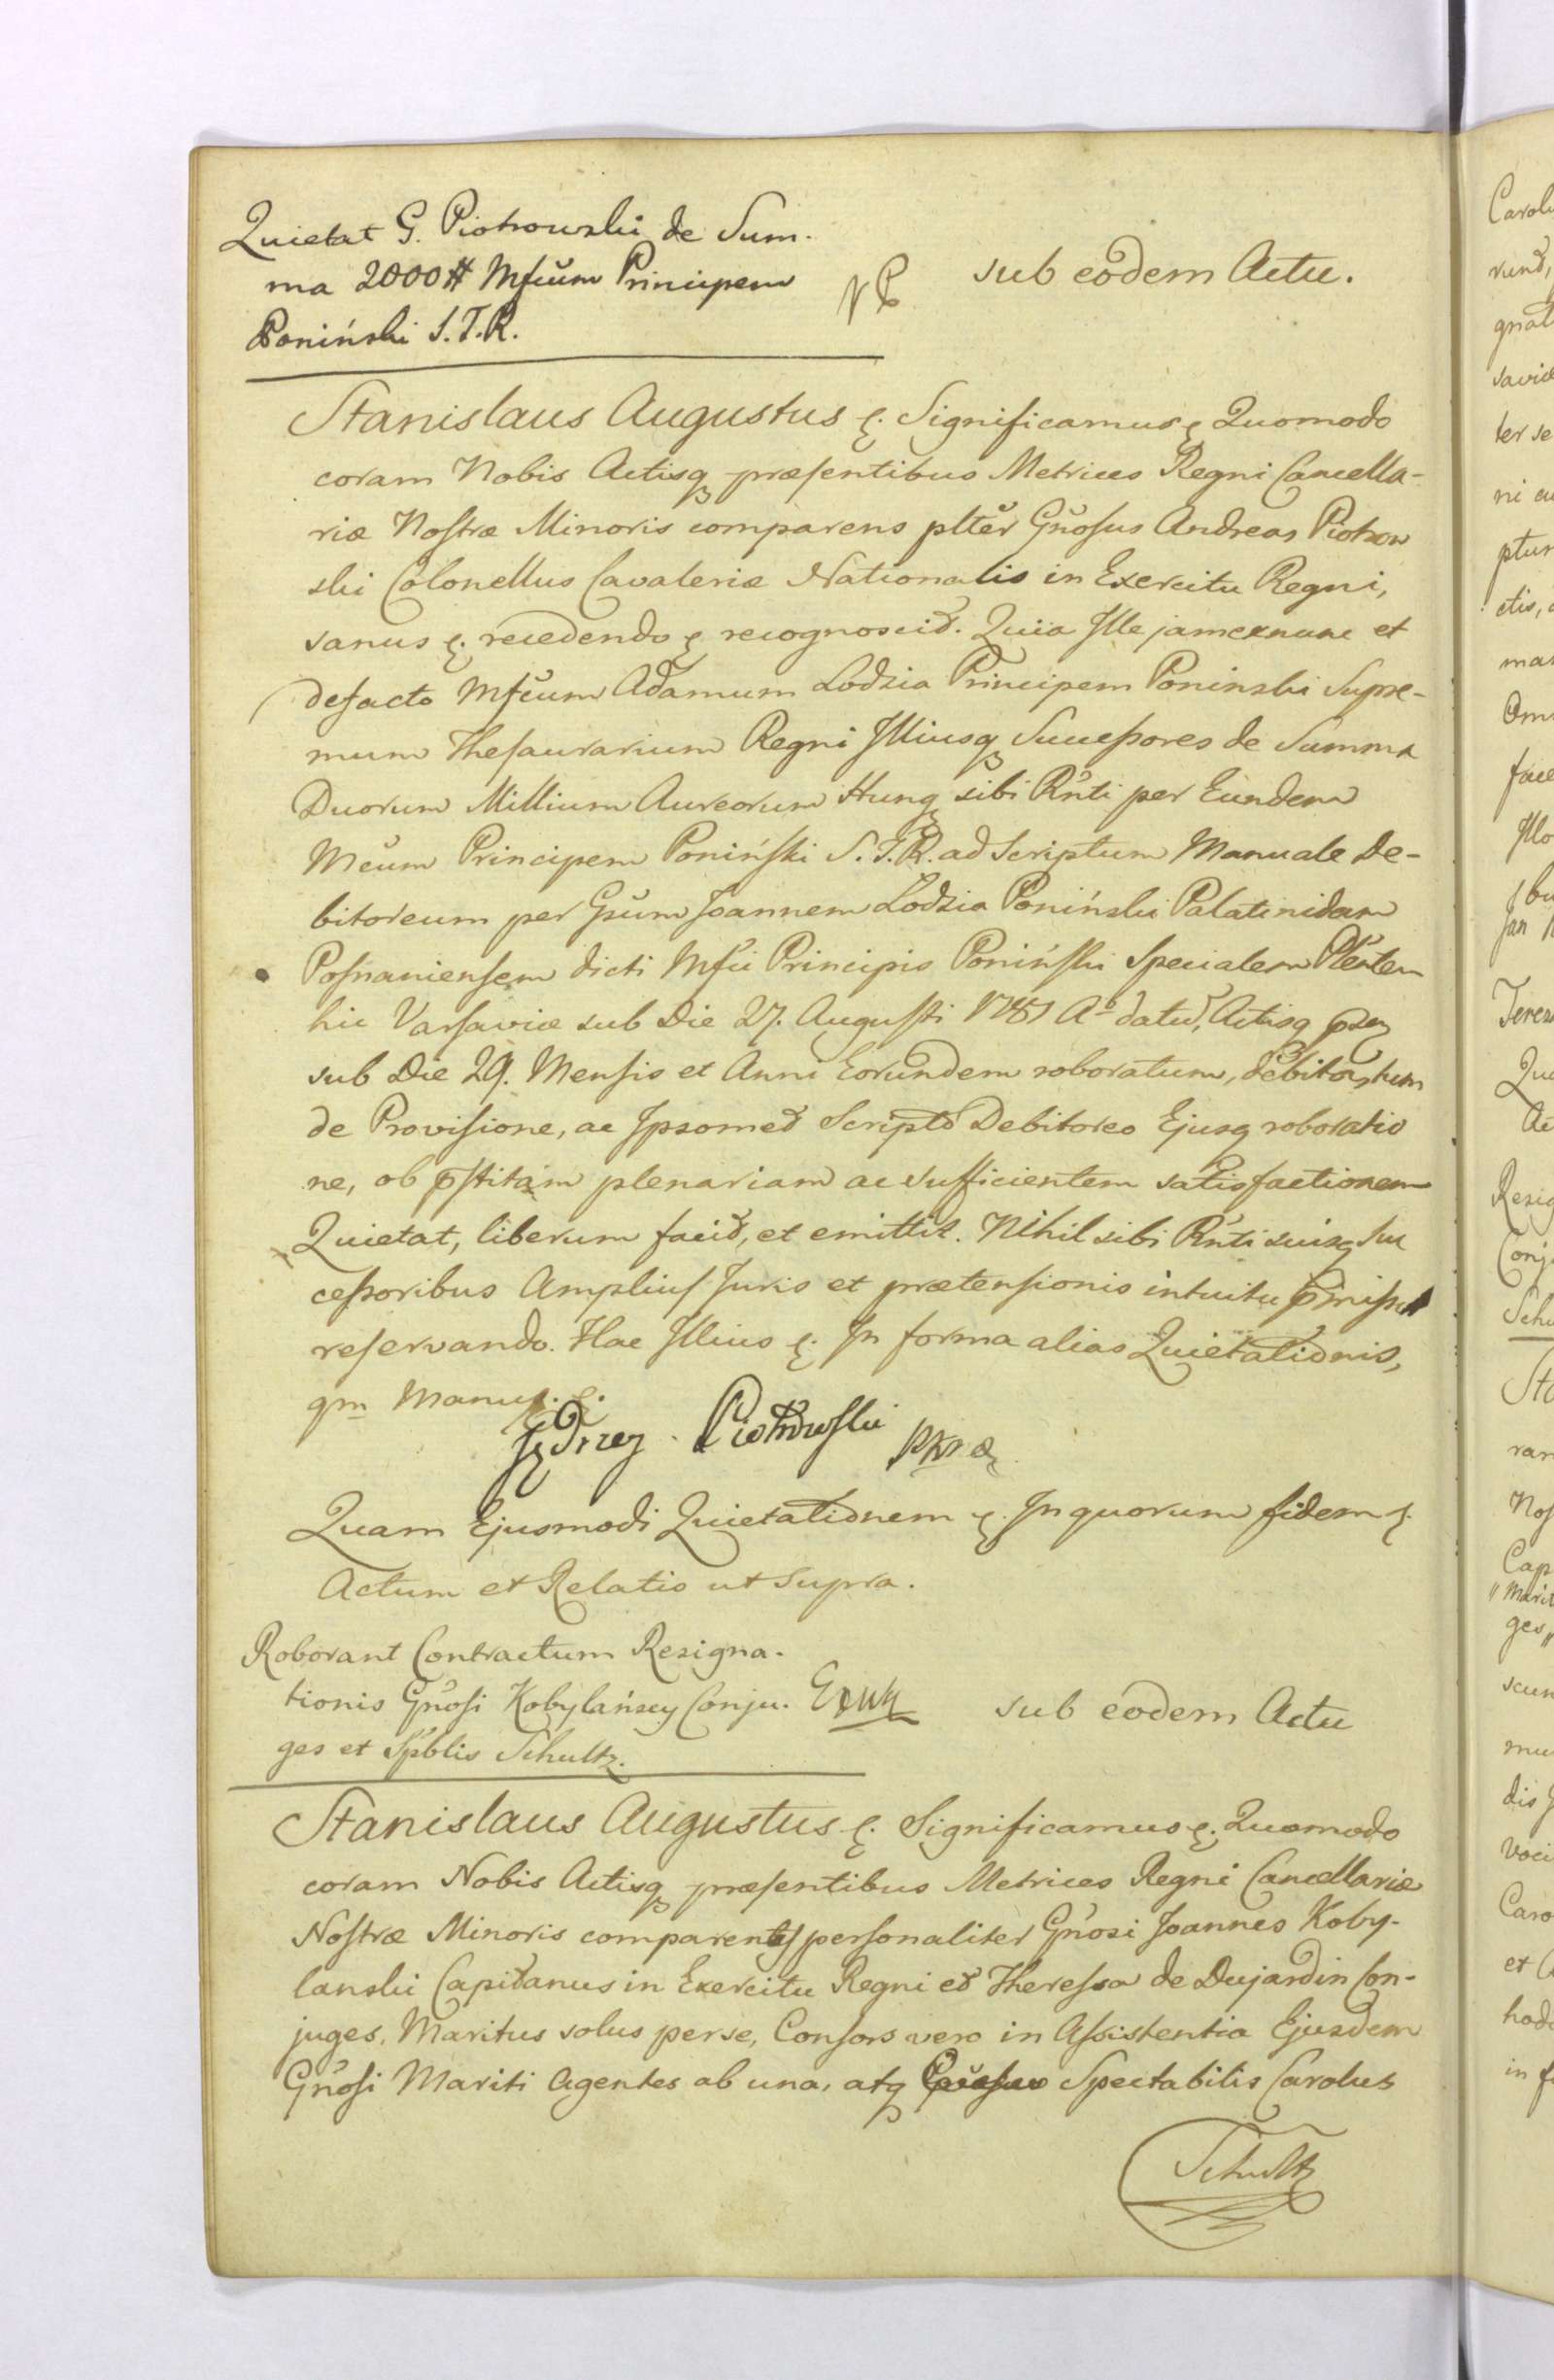 Quietat G. Piotrowski de Sum-
ma 2000 # Mfcum Principem
Poniński S.T.R.
NB sub eodem Actu.
Stanislaus Augustus &. Significamus & Quomodo
coram Nobis Actisq præsentibus Metrices Regni Cancella-
riæ Nostræ Minoris comparens plter Gnosus Andreas Piotrow
ski Colonellus Cavaleriæ Nationalis in Exercitu Regni,
sanus &. recedendo & recognoscit. Quia Ille jamexnunc et
defacto Mfcum Adamum Lodzia Principem Poninski Supre-
mum Thesaurarium Regni Illiusq Successores de Summa
Duorum Millium Aureorum Hung sibi Rnti per Eundem
Mcum Principem Poniński S.T.R. ad Scriptum Manuale De-
bitoreum per Gsum Joannem Lodzia Poniński Palatinidam
Posnaniensem dicti Mfci Principis Poniński Specialem Plentem
hic Varsaviæ sub Die 27. Augusti 1781 Ao datū, Actisq
sub Die 29. Mensis et Anni Eorundem roboratum, debita, tum
de Provisione, ac Ipsomet Scripto Debitoreo Ejusq roboratio
ne, ob pstitam plenariam ac sufficientem satisfactionem
Quietat, liberum facit, et emittit. Nihil sibi Rnti suisq Suc
cessoribus Amplius Juris et prætensionis intuitu pmissor
reservando. Hac Illius &. In forma alias Quietationis,
qm Manu &.
Jędrzej Piotrowski
Quam Ejusmodi Quietationem &. In quorum fidem &.
Actum et Relatio ut supra.
Roborant Contractum Resigna-
tionis Gnosi Kobylańscy Conju-
ges et Spblis Schultz.
sub eodem Actu
Stanislaus Augustus &. Significamus &. Quomodo
coram Nobis Actisq præsentibus Metrices Regni Cancellariæ
Nostræ Minoris comparentes personaliter Gnosi Joannes Koby-
lanski Capitanus in Exercitu Regni et Theressa de Dujardin Con-
juges, Maritus solus perse, Consors vero in Assistentia Ejusdem
Gnosi Mariti Agentes ab una, atq Spectabilis Carolus
Schultz